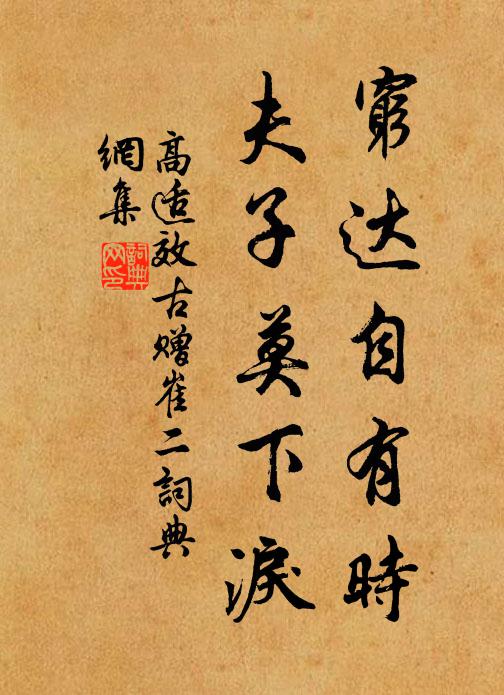 窮达自有時
夫子莫下淚
高适效古赠崔二詞典
網集
詞典
网印